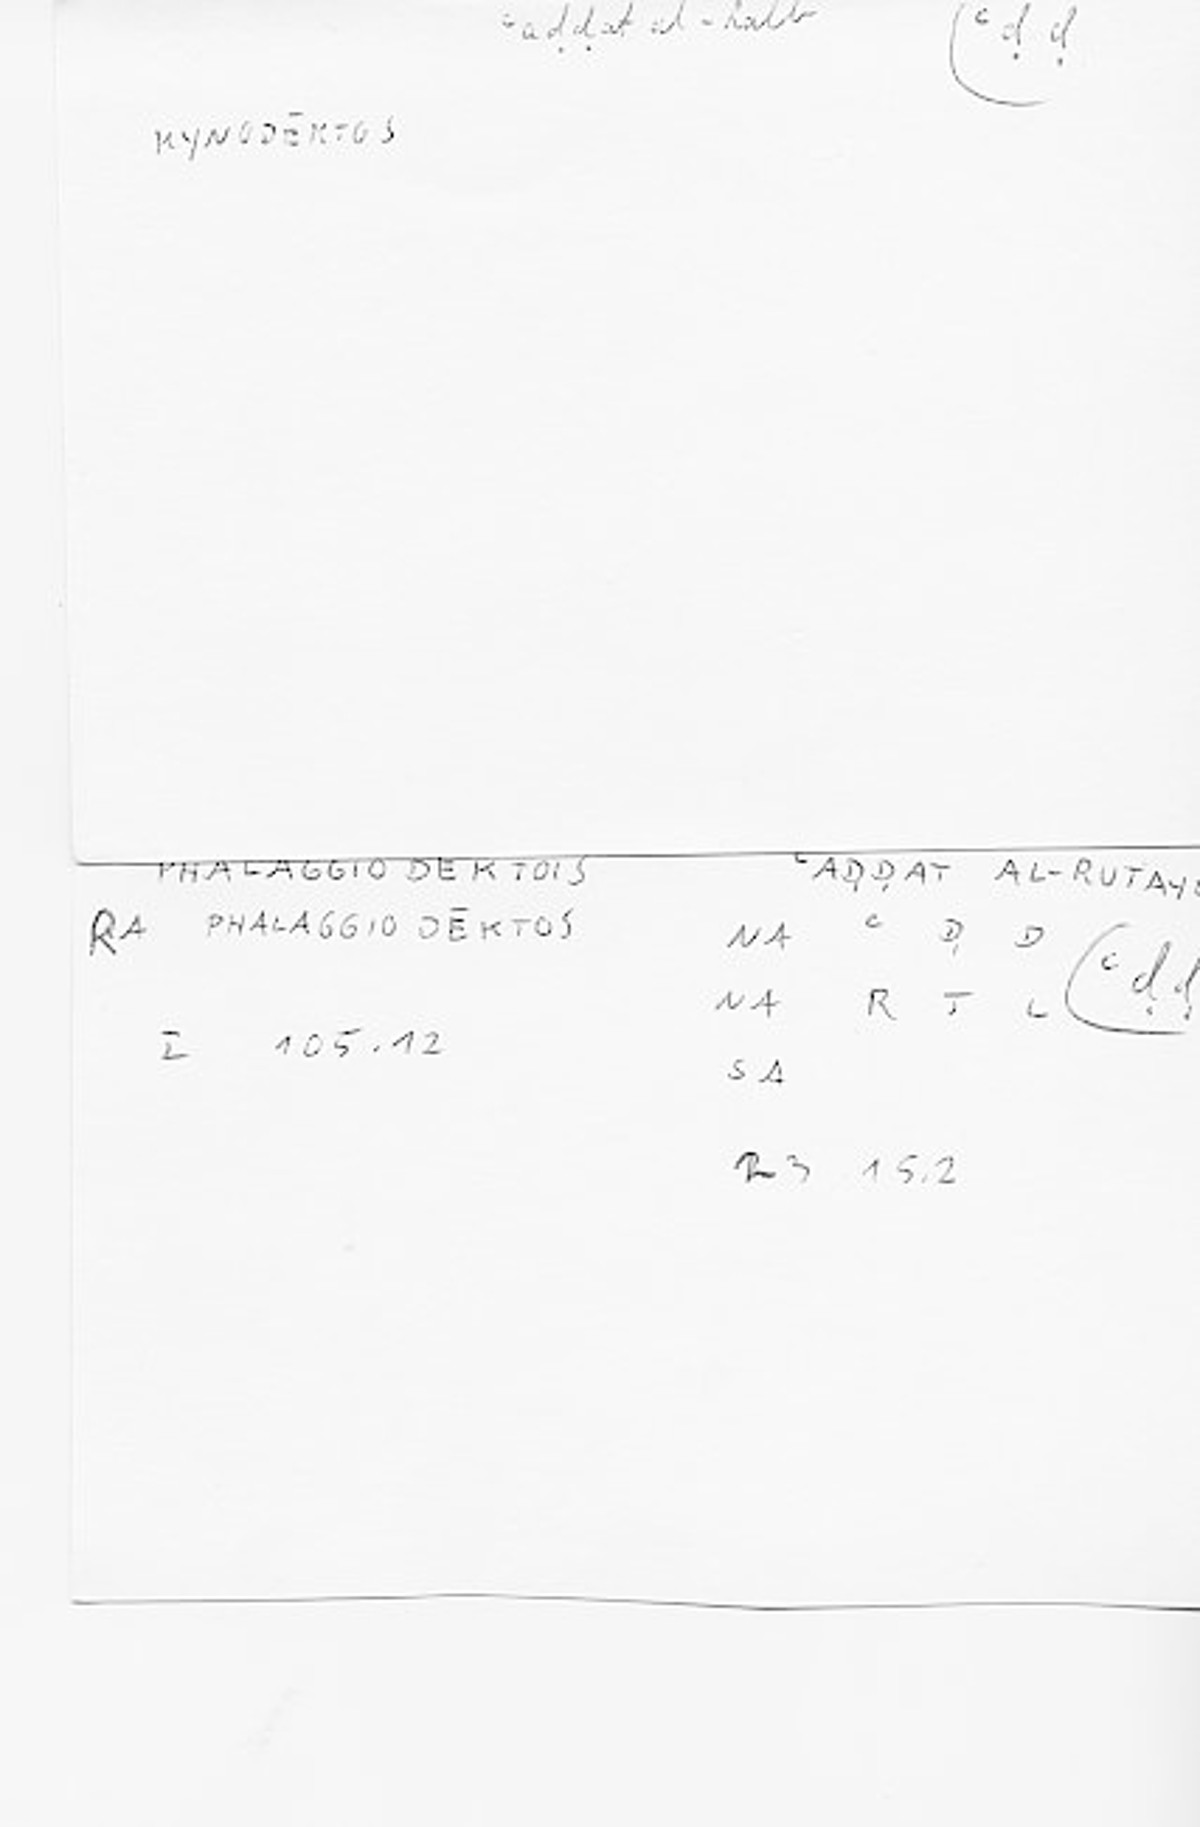 ʿaḍḍat al-kalb (ʿḍḍ
KYNODĒKTOS
PHALAGGIODEKTOIS ʿAḌḌAT AL-RUTAY
RA PHALAGGIODĒKTOS
NA ʿ Ḍ D (ʿḍḍ
NA R T L
I 105.12
SA
R3 15.2